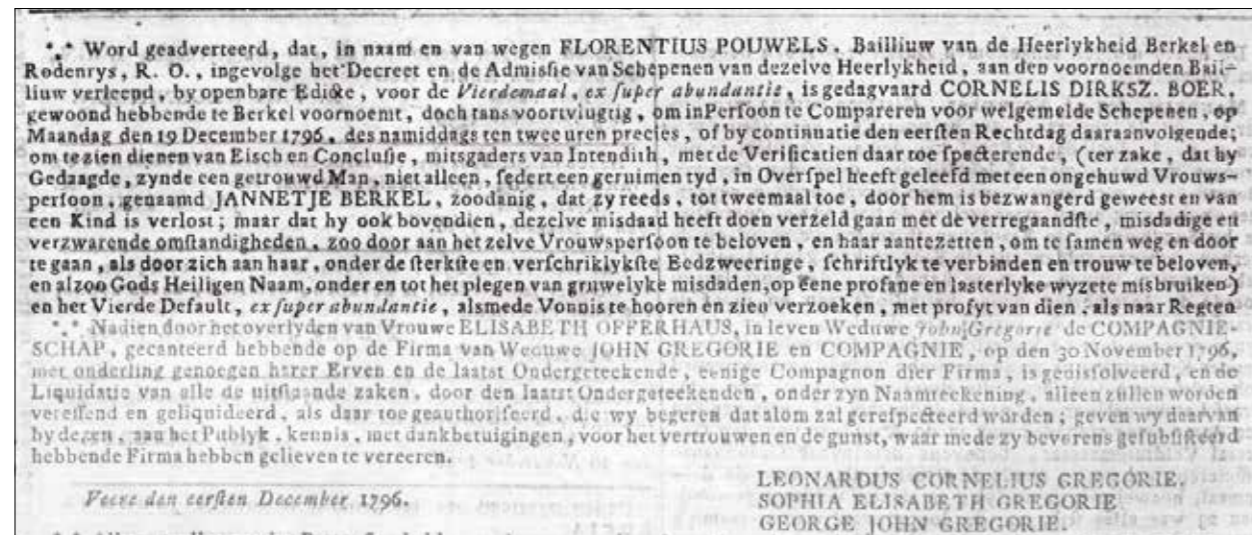 *⁎* Word geadverteerd, dat, in naam en van wegen FLORENTIUS POUWELS. Bailliuw van de Heerlykheid Berkel en
Rodenrys, R. O., ingevolge het Decreet en de Admisſie van Schepenen van dezelve Heerlykheid, aan den voornoemden Bail-
liuw verleend, by openbare Edicte, voor de Vierdemaal, ex ſuper abundantie, is gedagvaard CORNELIS DIRKSZ. BOER,
gewoond hebbende te Berkel voornoemt, doch tans voortvlugtig, om in Perſoon te Compareren voor welgemelde Schepenen, op
Maandag den 19 December 1796, des namiddags ten twee uren precies, of by continuatie den eerſten Rechtdag daaraanvolgende;
om te zien dienen van Eisch en Concluſie, mitsgaders van Intendith, met de Verificatien daar toe ſpecterende, (ter zake, dat hy
Gedaagde, zynde een getrouwd Man, niet alleen, ſedert een geruimen tyd, in Overſpel heeft geleefd met een ongehuwd Vrouws-
perſoon, genaamd JANNETJE BERKEL, zoodanig, dat zy reeds, tot tweemaal toe, door hem is bezwangerd geweest en van
een Kind is verlost; maar dat hy ook bovendien, dezelve misdaad heeft doen verzeld gaan met de verregaandſte, misdadige en
verzwarende omſtandigheden, zoo door aan het zelve Vrouwsperſoon te beloven, en haar aantezetten, om te ſamen weg en door
te gaan, als door zich aan haar, onder de ſterkſte en verſchriklykſte Eedzweeringe, ſchriftlyk te verbinden en trouw te beloven,
en alzoo Gods Heiligen Naam, onder en tot het plegen van gruwelyke misdaden, op eene profane en lasterlyke wyze te misbruiken)
en het Vierde Default, ex ſuper abundantie, alsmede Vonnis te hooren en zien verzoeken, met profyt van dien, als naar Regten
*⁎* Nadien door het overlyden van Vrouwe ELISABETH OFFERHAUS, in leven Weduwe John Gregorie de COMPAGNIE-
SCHAP, gecanteerd hebbende op de Firma van Weduwe JOHN GREGORIE en COMPAGNIE, op den 30 November 1796,
met onderling genoegen harer Erven en de laatst Ondergeteekende, eenige Compagnon dier Firma, is gedisſolveerd, en de
Liquidatie van alle de uitſtaande zaken, door den laatst Ondergeteekenden, onder zyn Naamteekening, alleen zullen worden
vereffend en geliquideerd, als daar toe geauthoriſeerd, die wy begeren dat alom zal gereſpecteerd worden; geven wy daarvan
by dezen, aan het Publyk, kennis, met dankbetuigingen, voor het vertrouwen en de gunst, waar mede zy bevorens geſubſiſteerd
hebbende Firma hebben gelieven te vereeren.
Veere den eerſten December 1796.
LEONARDUS CORNELIUS GREGORIE.
SOPHIA ELISABETH GREGORIE
GEORGE JOHN GREGORIE.